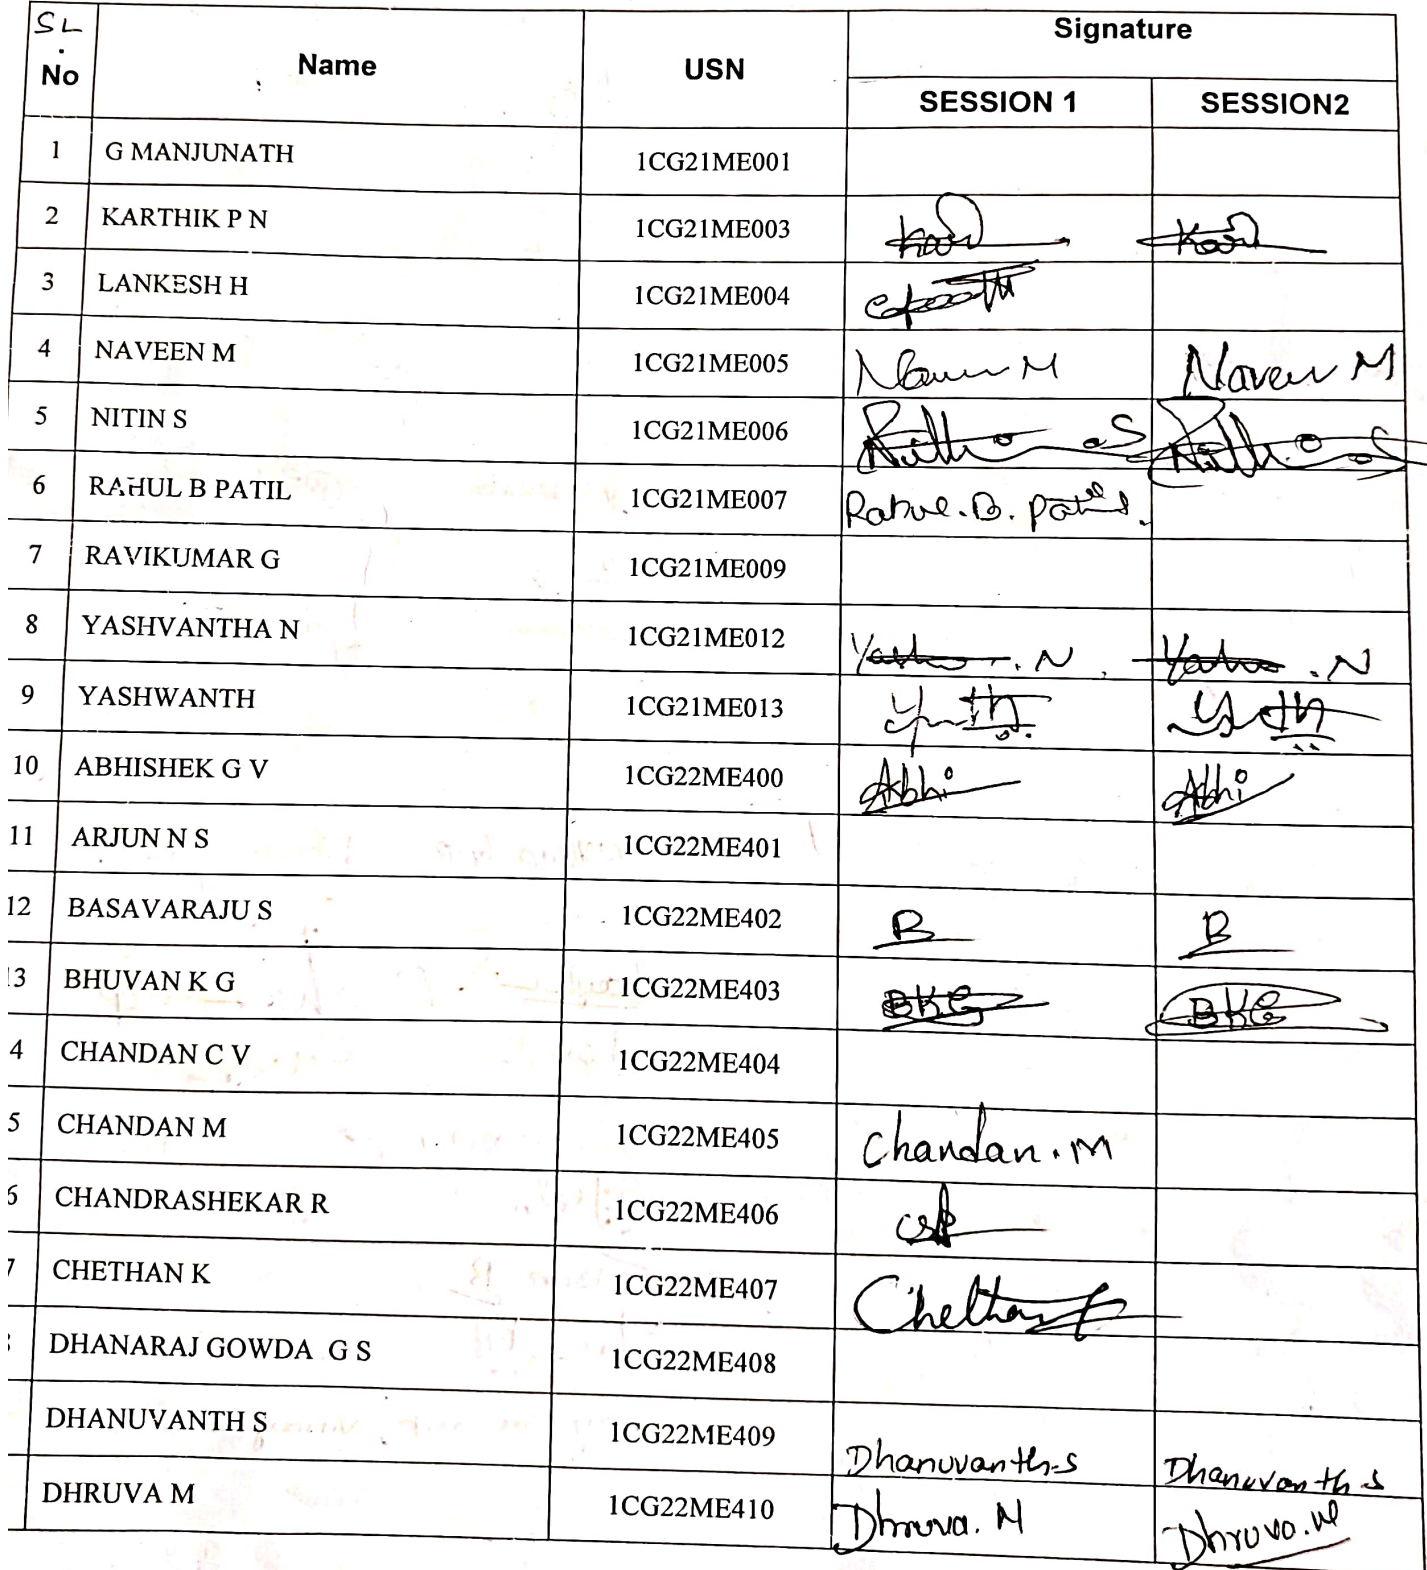 SL. No Name USN Signature
SESSION 1 SESSION2
1 G MANJUNATH 1CG21ME001
2 KARTHIK P N 1CG21ME003
3 LANKESH H 1CG21ME004
4 NAVEEN M 1CG21ME005 Naveen M
5 NITIN S 1CG21ME006
6 RAHUL B PATIL 1CG21ME007 Rahul.B.Patil.
7 RAVIKUMAR G 1CG21ME009
8 YASHVANTHA N 1CG21ME012
9 YASHWANTH 1CG21ME013
10 ABHISHEK G V 1CG22ME400 Abhi Abhi
11 ARJUN N S 1CG22ME401
12 BASAVARAJU S 1CG22ME402 B B
13 BHUVAN K G 1CG22ME403 BKG BKG
4 CHANDAN C V 1CG22ME404
5 CHANDAN M 1CG22ME405 Chandan.M
6 CHANDRASHEKAR R 1CG22ME406
7 CHETHAN K 1CG22ME407 Chethan
DHANARAJ GOWDA G S 1CG22ME408
DHANUVANTH S 1CG22ME409 Dhanuvanth.S Dhanuvanth.S
DHRUVA M 1CG22ME410 Dhruva.M Dhruva.M